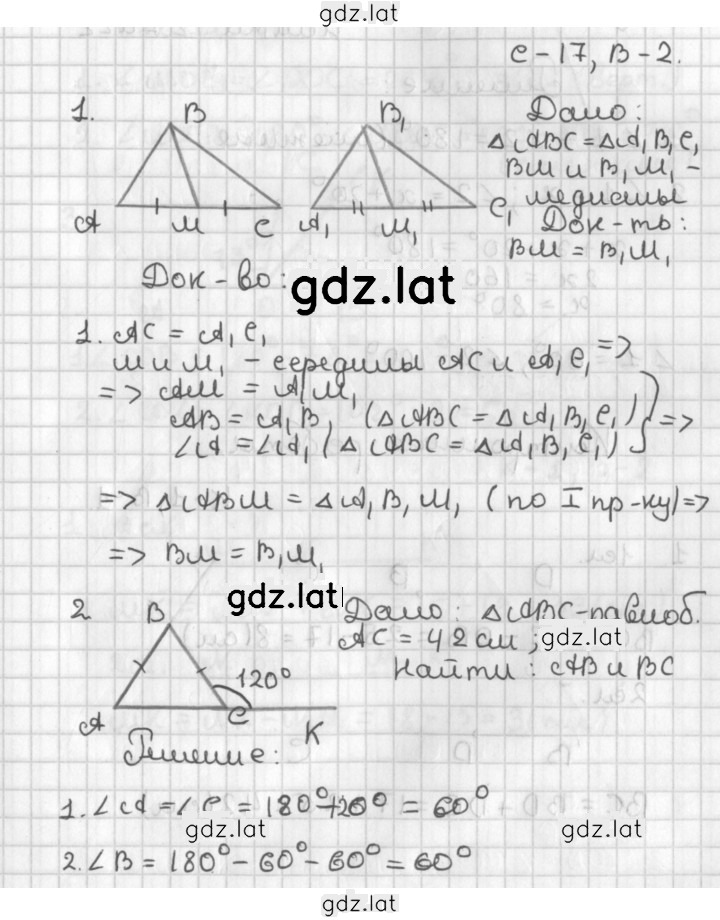 gdz.lat
С-17, В-2.
1.
B
A M C
B₁
A₁ M₁ C₁
Дано:
△ABC = △A₁B₁C₁
BM и B₁M₁ -
медианы
Док-ть:
BM = B₁M₁
Док-во:
gdz.lat
1. AC = A₁C₁
M и M₁ - середины AC и A₁C₁ =>
=> AM = A₁M₁
AB = A₁B₁ (△ABC = △A₁B₁C₁)
∠A = ∠A₁ (△ABC = △A₁B₁C₁) } =>
=> △ABM = △A₁B₁M₁ (по I пр-ку) =>
=> BM = B₁M₁
gdz.lat
2
B
120°
A C K
Дано: △ABC - равноб.
AC = 42 см;
gdz.lat
Найти: AB и BC
Решение:
1. ∠A = ∠C = 180° - 120° = 60°
gdz.lat
gdz.lat
2. ∠B = 180° - 60° - 60° = 60°
gdz.lat